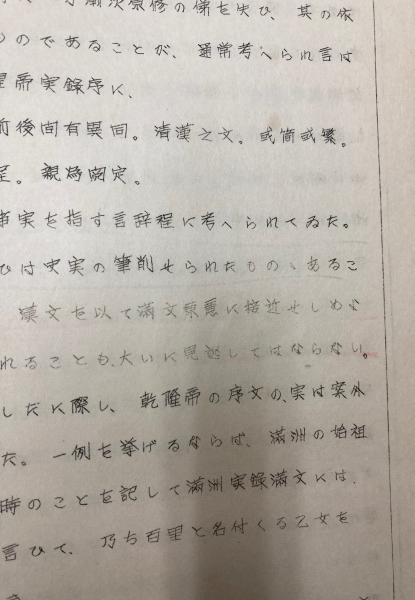 漸次原修の俤を失ひ、其の依
のであることが、通常考へられ言は
帝実録序に、
前後間有異同。清漢之文。或簡或繁。
。親為閲定。
事実を指す言辞程に考へられてゐた。
ひは史実の筆削せられたもの、あるこ
漢文を以て満文原意に接近せしめな
れることも、大いに見逃してはならない。
しだに際し、乾隆帝の序文の、実は案外
た。一例を挙げるならば、満洲の始祖
時のことを記して満洲実録満文には、
言ひて、乃ち百里と名付くる乙女を